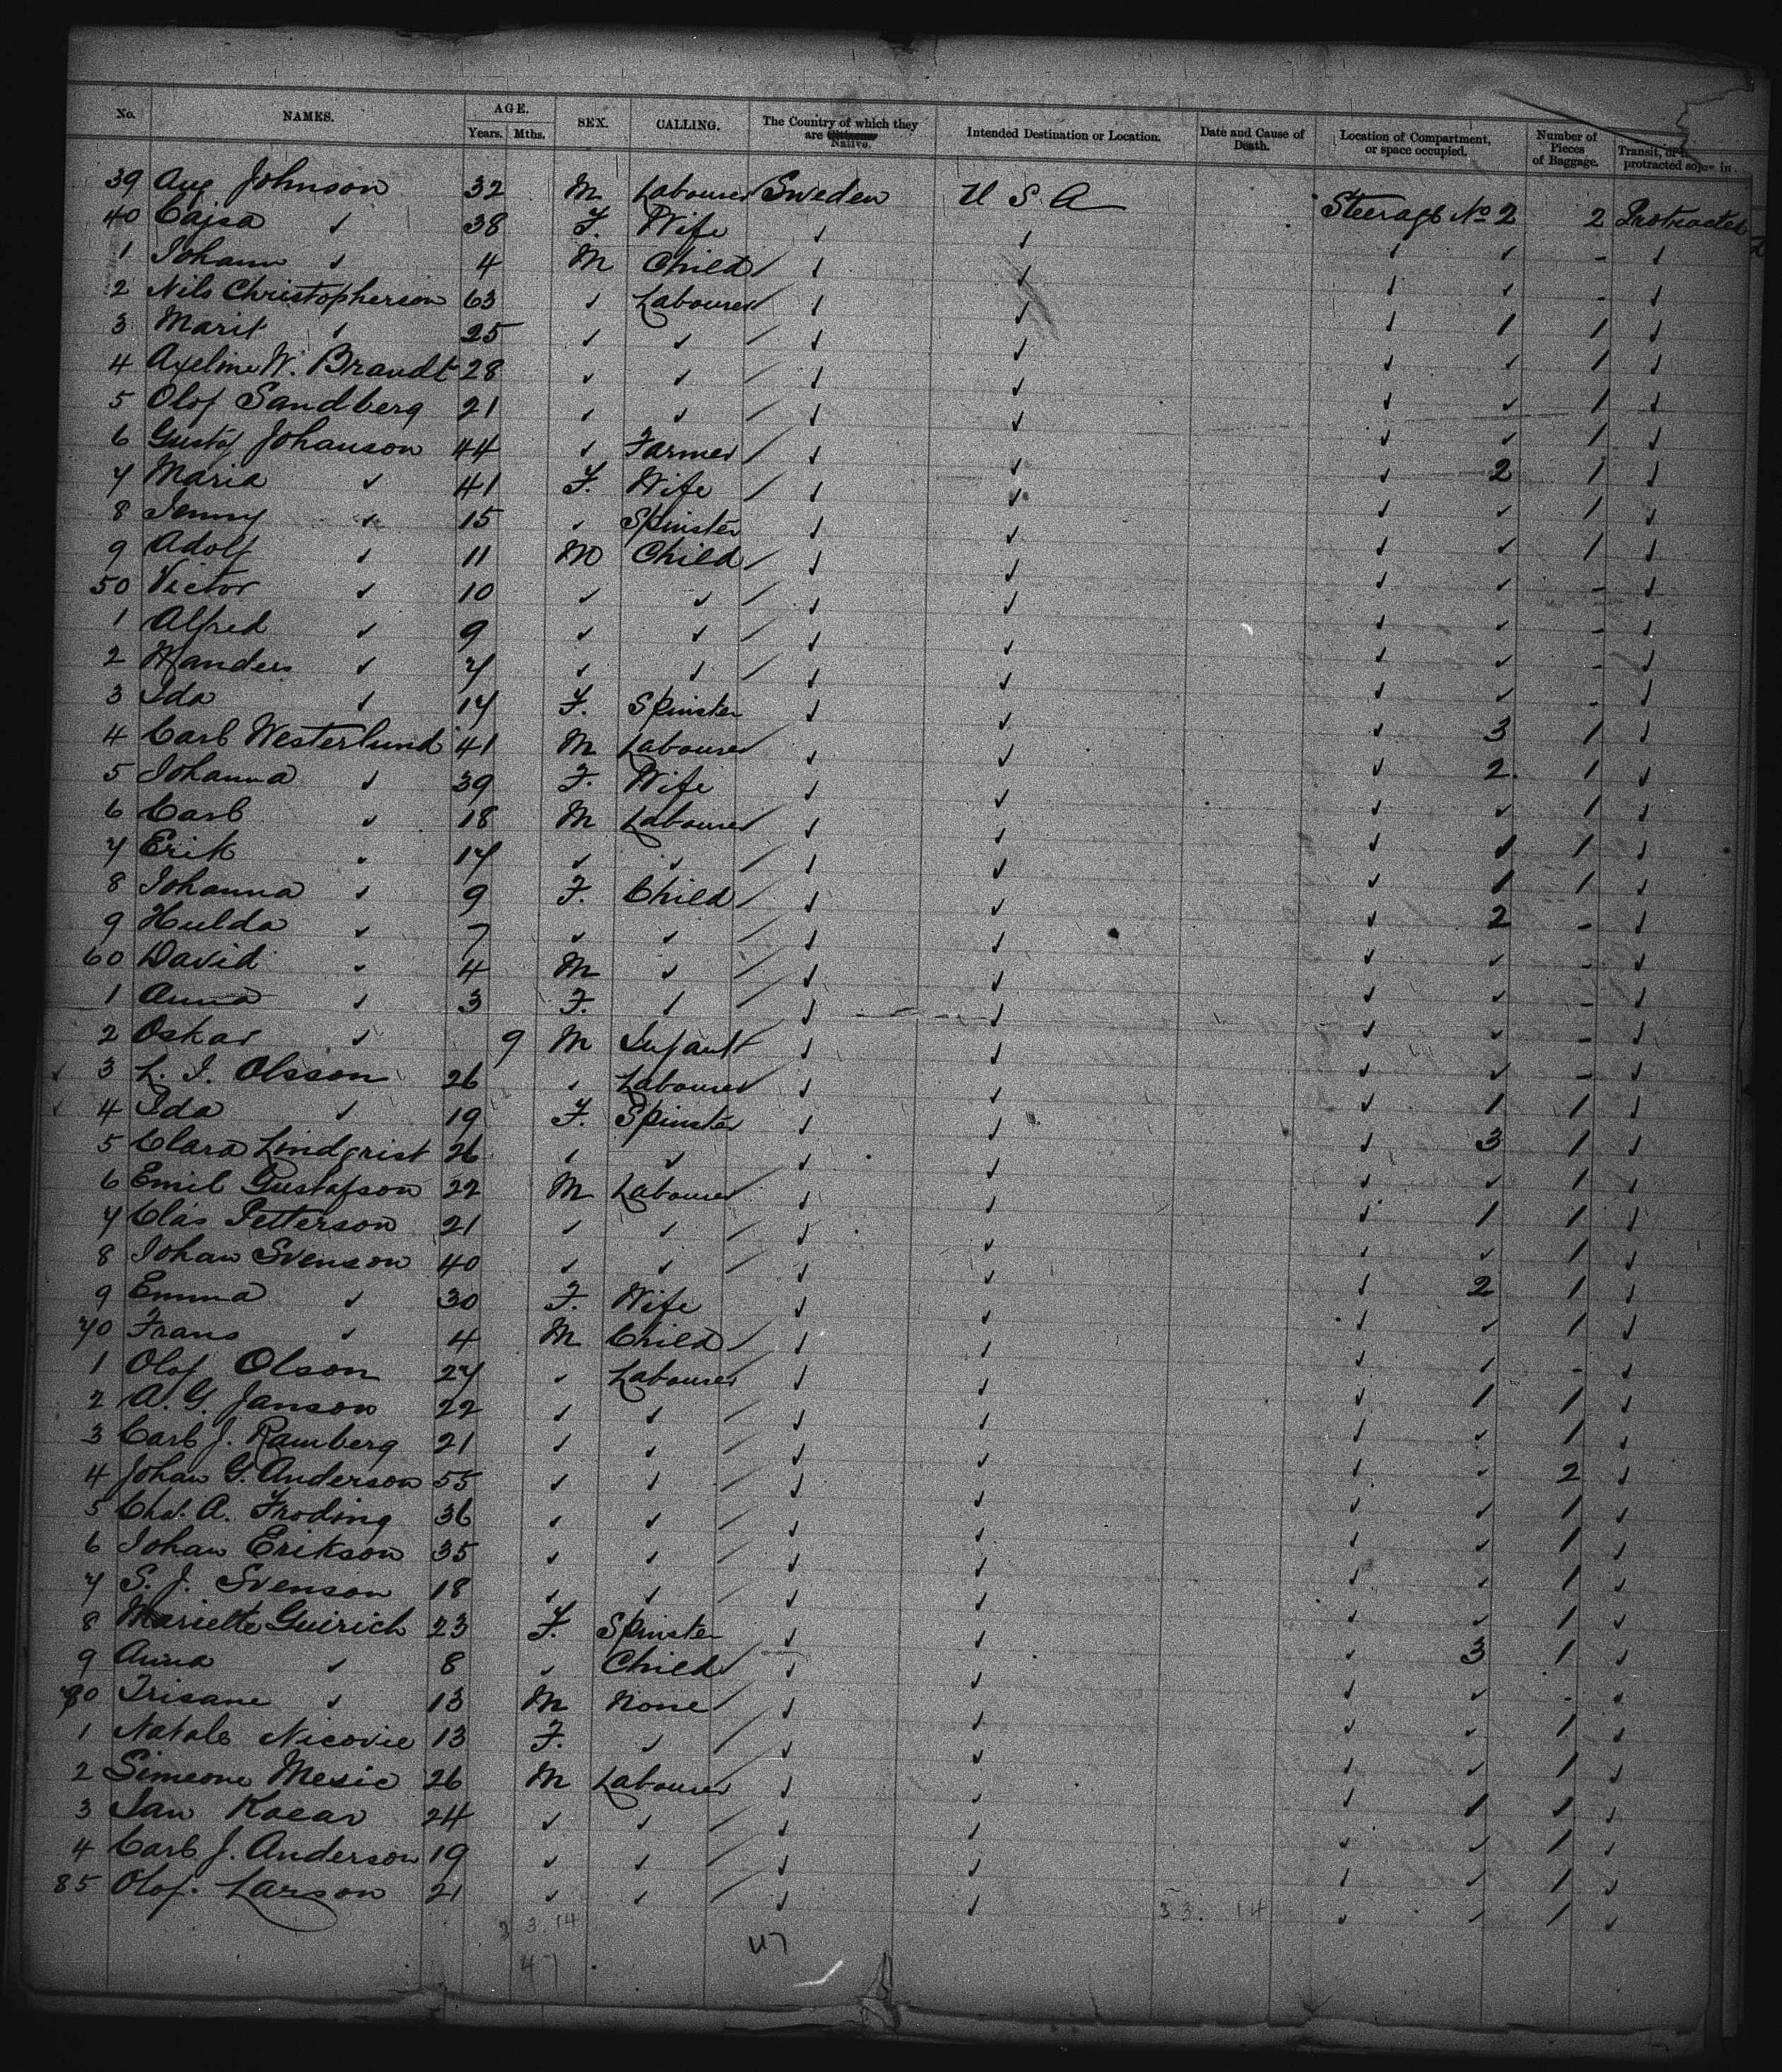 No. NAMES. AGE. Years. Mths. SEX. CALLING. The Country of which they are Citizens Native. Intended Destination or Location. Date and Cause of Death. Location of Compartment, or space occupied. Number of Pieces of Baggage. Transit, or protracted sojourn in
39 Aug Johnson 32 M Labourer Sweden U S A Steerage No 2 2 Protracted
40 Cajsa ✓ 38 F. Wife ✓ ✓ ✓ ✓ - ✓
1 Johann ✓ 4 M Child ✓ ✓ ✓ ✓ - ✓
2 Nils Christopherson 63 ✓ Labourer ✓ ✓ ✓ 1 1 ✓
3 Marit ✓ 25 ✓ ✓ ✓ ✓ ✓ ✓ 1 ✓
4 Axeline W. Brandt 28 ✓ ✓ ✓ ✓ ✓ ✓ 1 ✓
5 Olof Sandberg 21 ✓ ✓ ✓ ✓ ✓ ✓ 1 ✓
6 Gustaf Johanson 44 ✓ Farmer ✓ ✓ ✓ 2 1 ✓
7 Maria ✓ 41 F. Wife ✓ ✓ ✓ ✓ 1 ✓
8 Jenny ✓ 15 ✓ Spinster ✓ ✓ ✓ ✓ 1 ✓
9 Adolf ✓ 11 M Child ✓ ✓ ✓ ✓ - ✓
50 Victor ✓ 10 ✓ ✓ ✓ ✓ ✓ ✓ - ✓
1 Alfred ✓ 9 ✓ ✓ ✓ ✓ ✓ ✓ - ✓
2 Manders ✓ 7 ✓ ✓ ✓ ✓ ✓ ✓ - ✓
3 Ida ✓ 17 F. Spinster ✓ ✓ ✓ 3 1 ✓
4 Carl Westerlund 41 M Labourer ✓ ✓ ✓ 2 1 ✓
5 Johanna ✓ 39 F. Wife ✓ ✓ ✓ ✓ 1 ✓
6 Carl ✓ 18 M Labourer ✓ ✓ ✓ 1 1 ✓
7 Erik ✓ 17 ✓ ✓ ✓ ✓ ✓ 1 1 ✓
8 Johanna ✓ 9 F. Child ✓ ✓ ✓ 2 - ✓
9 Hulda ✓ 7 ✓ ✓ ✓ ✓ ✓ ✓ - ✓
60 David ✓ 4 M ✓ ✓ ✓ ✓ ✓ - ✓
1 Anna ✓ 3 F. ✓ ✓ ✓ ✓ ✓ - ✓
2 Oskar ✓ 9 M Infant ✓ ✓ ✓ ✓ - ✓
✓ 3 L. J. Olsson 26 ✓ Labourer ✓ ✓ ✓ 1 1 ✓
✓ 4 Ida ✓ 19 F. Spinster ✓ ✓ ✓ 3 1 ✓
5 Clara Lindqrist 26 ✓ ✓ ✓ ✓ ✓ ✓ 1 ✓
6 Emil Gustafson 22 M Labourer ✓ ✓ ✓ 1 1 ✓
7 Clas Petterson 21 ✓ ✓ ✓ ✓ ✓ ✓ 1 ✓
8 Johan Svenson 40 ✓ ✓ ✓ ✓ ✓ 2 1 ✓
9 Emma ✓ 30 F. Wife ✓ ✓ ✓ ✓ 1 ✓
70 Frans ✓ 4 M Child ✓ ✓ ✓ ✓ - ✓
1 Olof Olson 27 ✓ Labourer ✓ ✓ ✓ 1 1 ✓
2 A. G. Janson 22 ✓ ✓ ✓ ✓ ✓ ✓ 1 ✓
3 Carl J. Ramberg 21 ✓ ✓ ✓ ✓ ✓ ✓ 2 ✓
4 Johan G. Anderson 55 ✓ ✓ ✓ ✓ ✓ ✓ 1 ✓
5 Chs. A. Froding 36 ✓ ✓ ✓ ✓ ✓ ✓ 1 ✓
6 Johan Erikson 35 ✓ ✓ ✓ ✓ ✓ ✓ 1 ✓
7 S. J. Svenson 18 ✓ ✓ ✓ ✓ ✓ ✓ 1 ✓
8 Mariette Guirich 23 F. Spinster ✓ ✓ ✓ 3 1 ✓
9 Anna ✓ 8 ✓ Child ✓ ✓ ✓ ✓ - ✓
80 Trisane ✓ 13 M None ✓ ✓ ✓ ✓ 1 ✓
1 Natale Nicovie 13 F. ✓ ✓ ✓ ✓ ✓ 1 ✓
2 Simeone Mesic 26 M Labourer ✓ ✓ ✓ 1 1 ✓
3 Jan Kocar 24 ✓ ✓ ✓ ✓ ✓ ✓ 1 ✓
4 Carl J. Anderson 19 ✓ ✓ ✓ ✓ ✓ ✓ 1 ✓
85 Olof. Larson 21 ✓ ✓ ✓ ✓ ✓ ✓ 1 ✓
3.14 33. 14
47 47